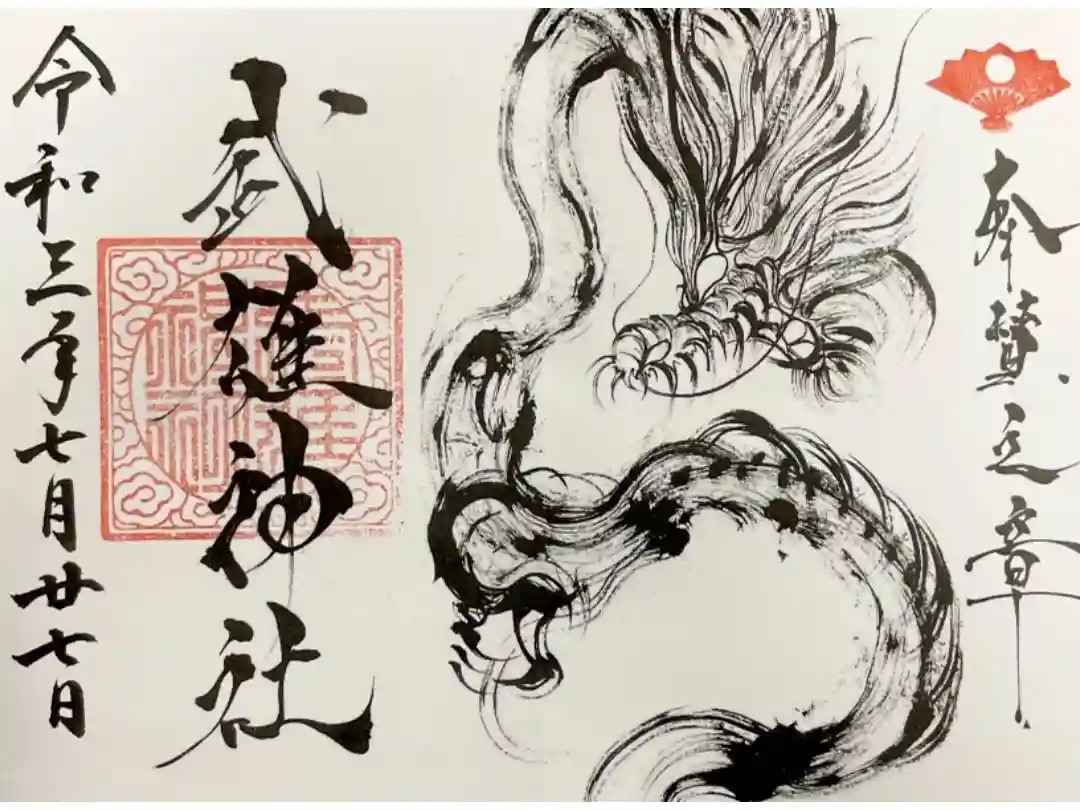 奉賛之章
武 神社
令和三年七月廿七日